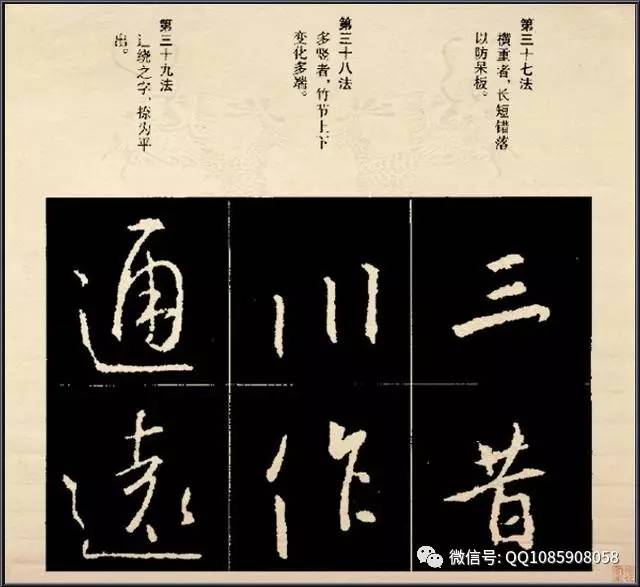 第三十七法
横重者，长短错落
以防呆板。
第三十八法
多竖者，竹节上下
变化多端。
第三十九法
辶绕之字，捺为平
出。
三
昔
川
作
通
远
微信号: QQ1085908058